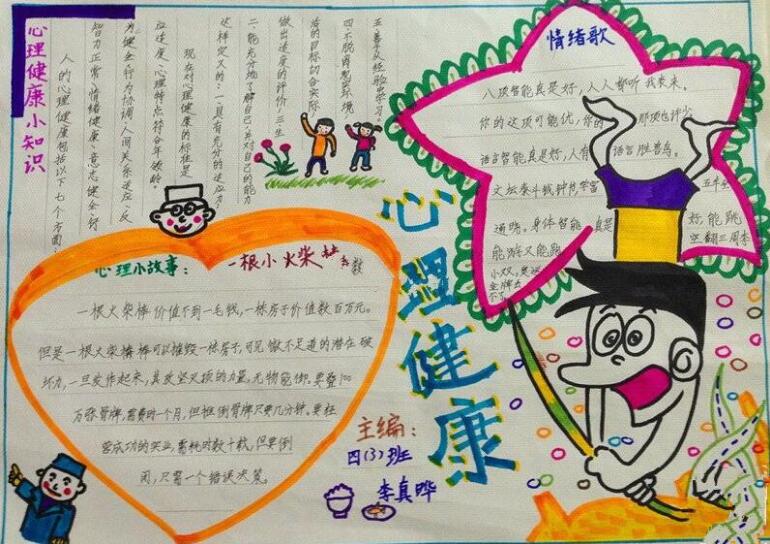 心理健康小知识
人的心理健康包括以下七个方面：
智力正常、情绪健康、意志健全、行
为健全、行为协调、人间关系适应、反
应适度、心理特点符合年龄。
现在对心理健康的标准是
这样定义的：一、具有充分的适应力；
二、能充分地了解自己，并对自己的能力
做出适度的评价；三、生
活的目标切合实际；
四、不脱离现实环境；
五、善于从经验中学习。
情绪歌
八项智能真是好，人人都听我来来。
你的这项可能优，你的那项也许少
语言智能真是好，人有语言胜兽鸟。
文坛泰斗钱钟书，学富五车
通晓。身体智能真是好，能跳
能游又能跑，空翻三周半
小双，奥运
金牌
心理小故事：
一根小火柴
一根火柴棒价值不到一毛钱，一栋房子价值数百万元。
但是一根火柴棒棒可以摧毁一栋房子，可见微不足道的潜在破
坏力，一旦发作起来，其攻坚灭顶的力量，无物能御。要叠100
万张骨牌，需费时一个月，但推倒骨牌只要几分钟。要经
营成功的实业，需耗时数十载，但要倒
闭，只需一个错误决策。
心理健康
主编：
四(3)班
李真晔